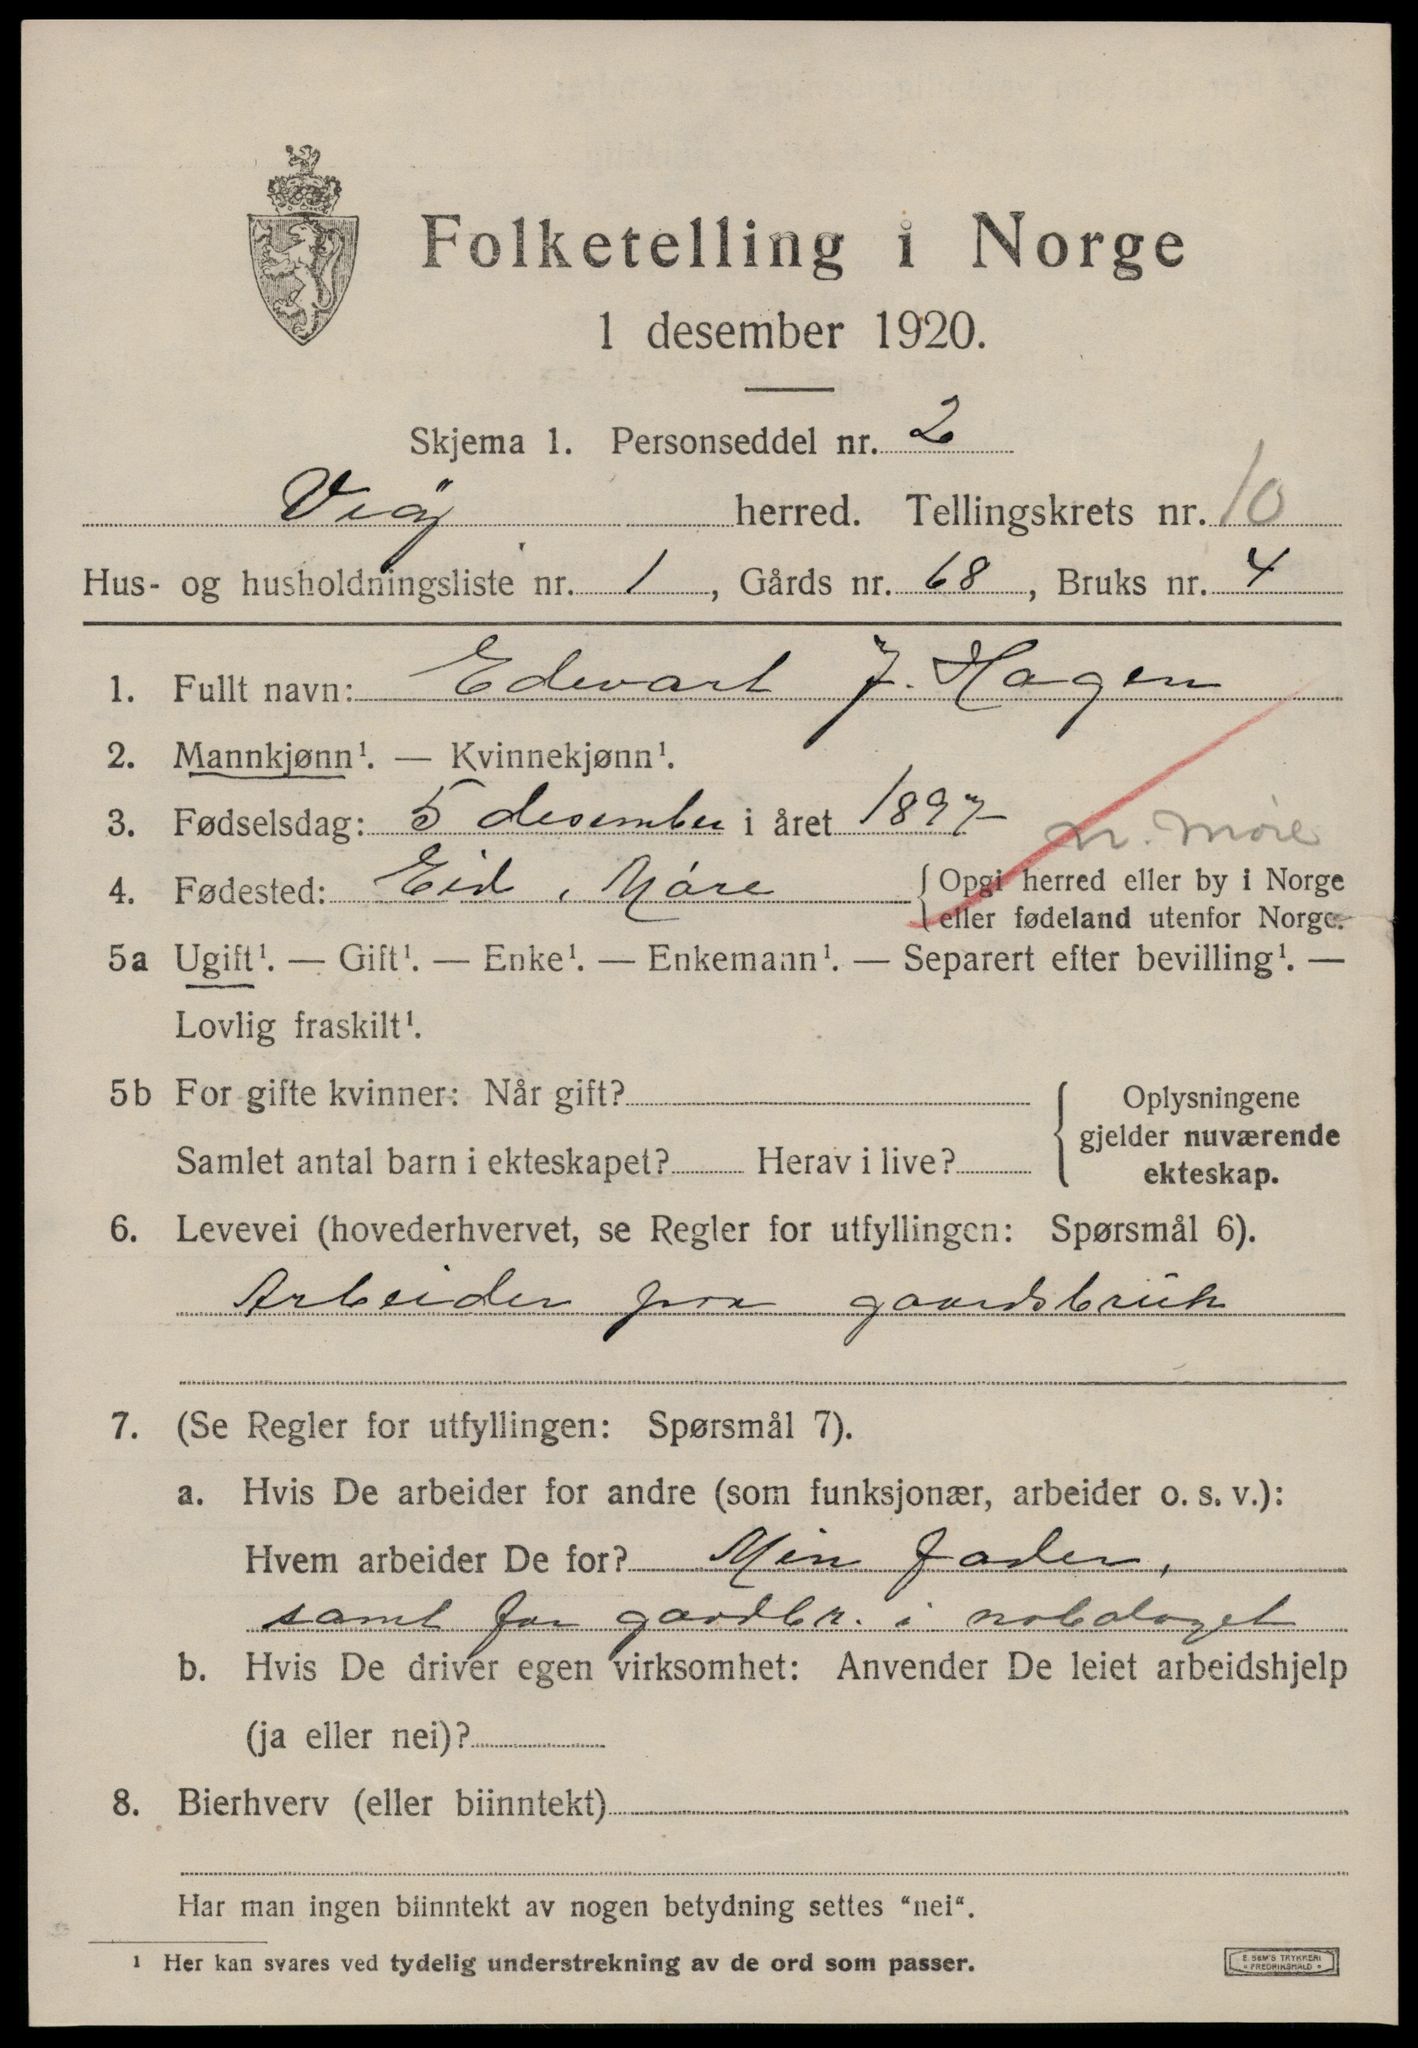 Folketelling i Norge
1 desember 1920.
Skjema 1. Personseddel nr. 2
Veøy herred. Tellingskrets nr. 10
Hus- og husholdningsliste nr. 1, Gårds nr. 68, Bruks nr. 4
1. Fullt navn: Edevart J. Hagen
2. Mannkjønn¹. — Kvinnekjønn¹.
3. Fødselsdag: 5 desember i året 1897
N. Møre
4. Fødested: Eid, Møre { Opgi herred eller by i Norge
eller fødeland utenfor Norge.
5a Ugift¹. — Gift¹. — Enke¹. — Enkemann¹. — Separert efter bevilling¹. —
Lovlig fraskilt¹.
5b For gifte kvinner: Når gift?
Samlet antal barn i ekteskapet? Herav i live?
{ Oplysningene
gjelder nuværende
ekteskap.
6. Levevei (hovederhvervet, se Regler for utfyllingen: Spørsmål 6).
Arbeider paa gaardsbruk
7. (Se Regler for utfyllingen: Spørsmål 7).
a. Hvis De arbeider for andre (som funksjonær, arbeider o. s. v.):
Hvem arbeider De for? Min fader,
samt for gaardbr. i nabolaget
b. Hvis De driver egen virksomhet: Anvender De leiet arbeidshjelp
(ja eller nei)?
8. Bierhverv (eller biinntekt)
Har man ingen biinntekt av nogen betydning settes "nei".
¹ Her kan svares ved tydelig understrekning av de ord som passer.
E. SEM'S TRYKKERI
FREDRIKSHALD